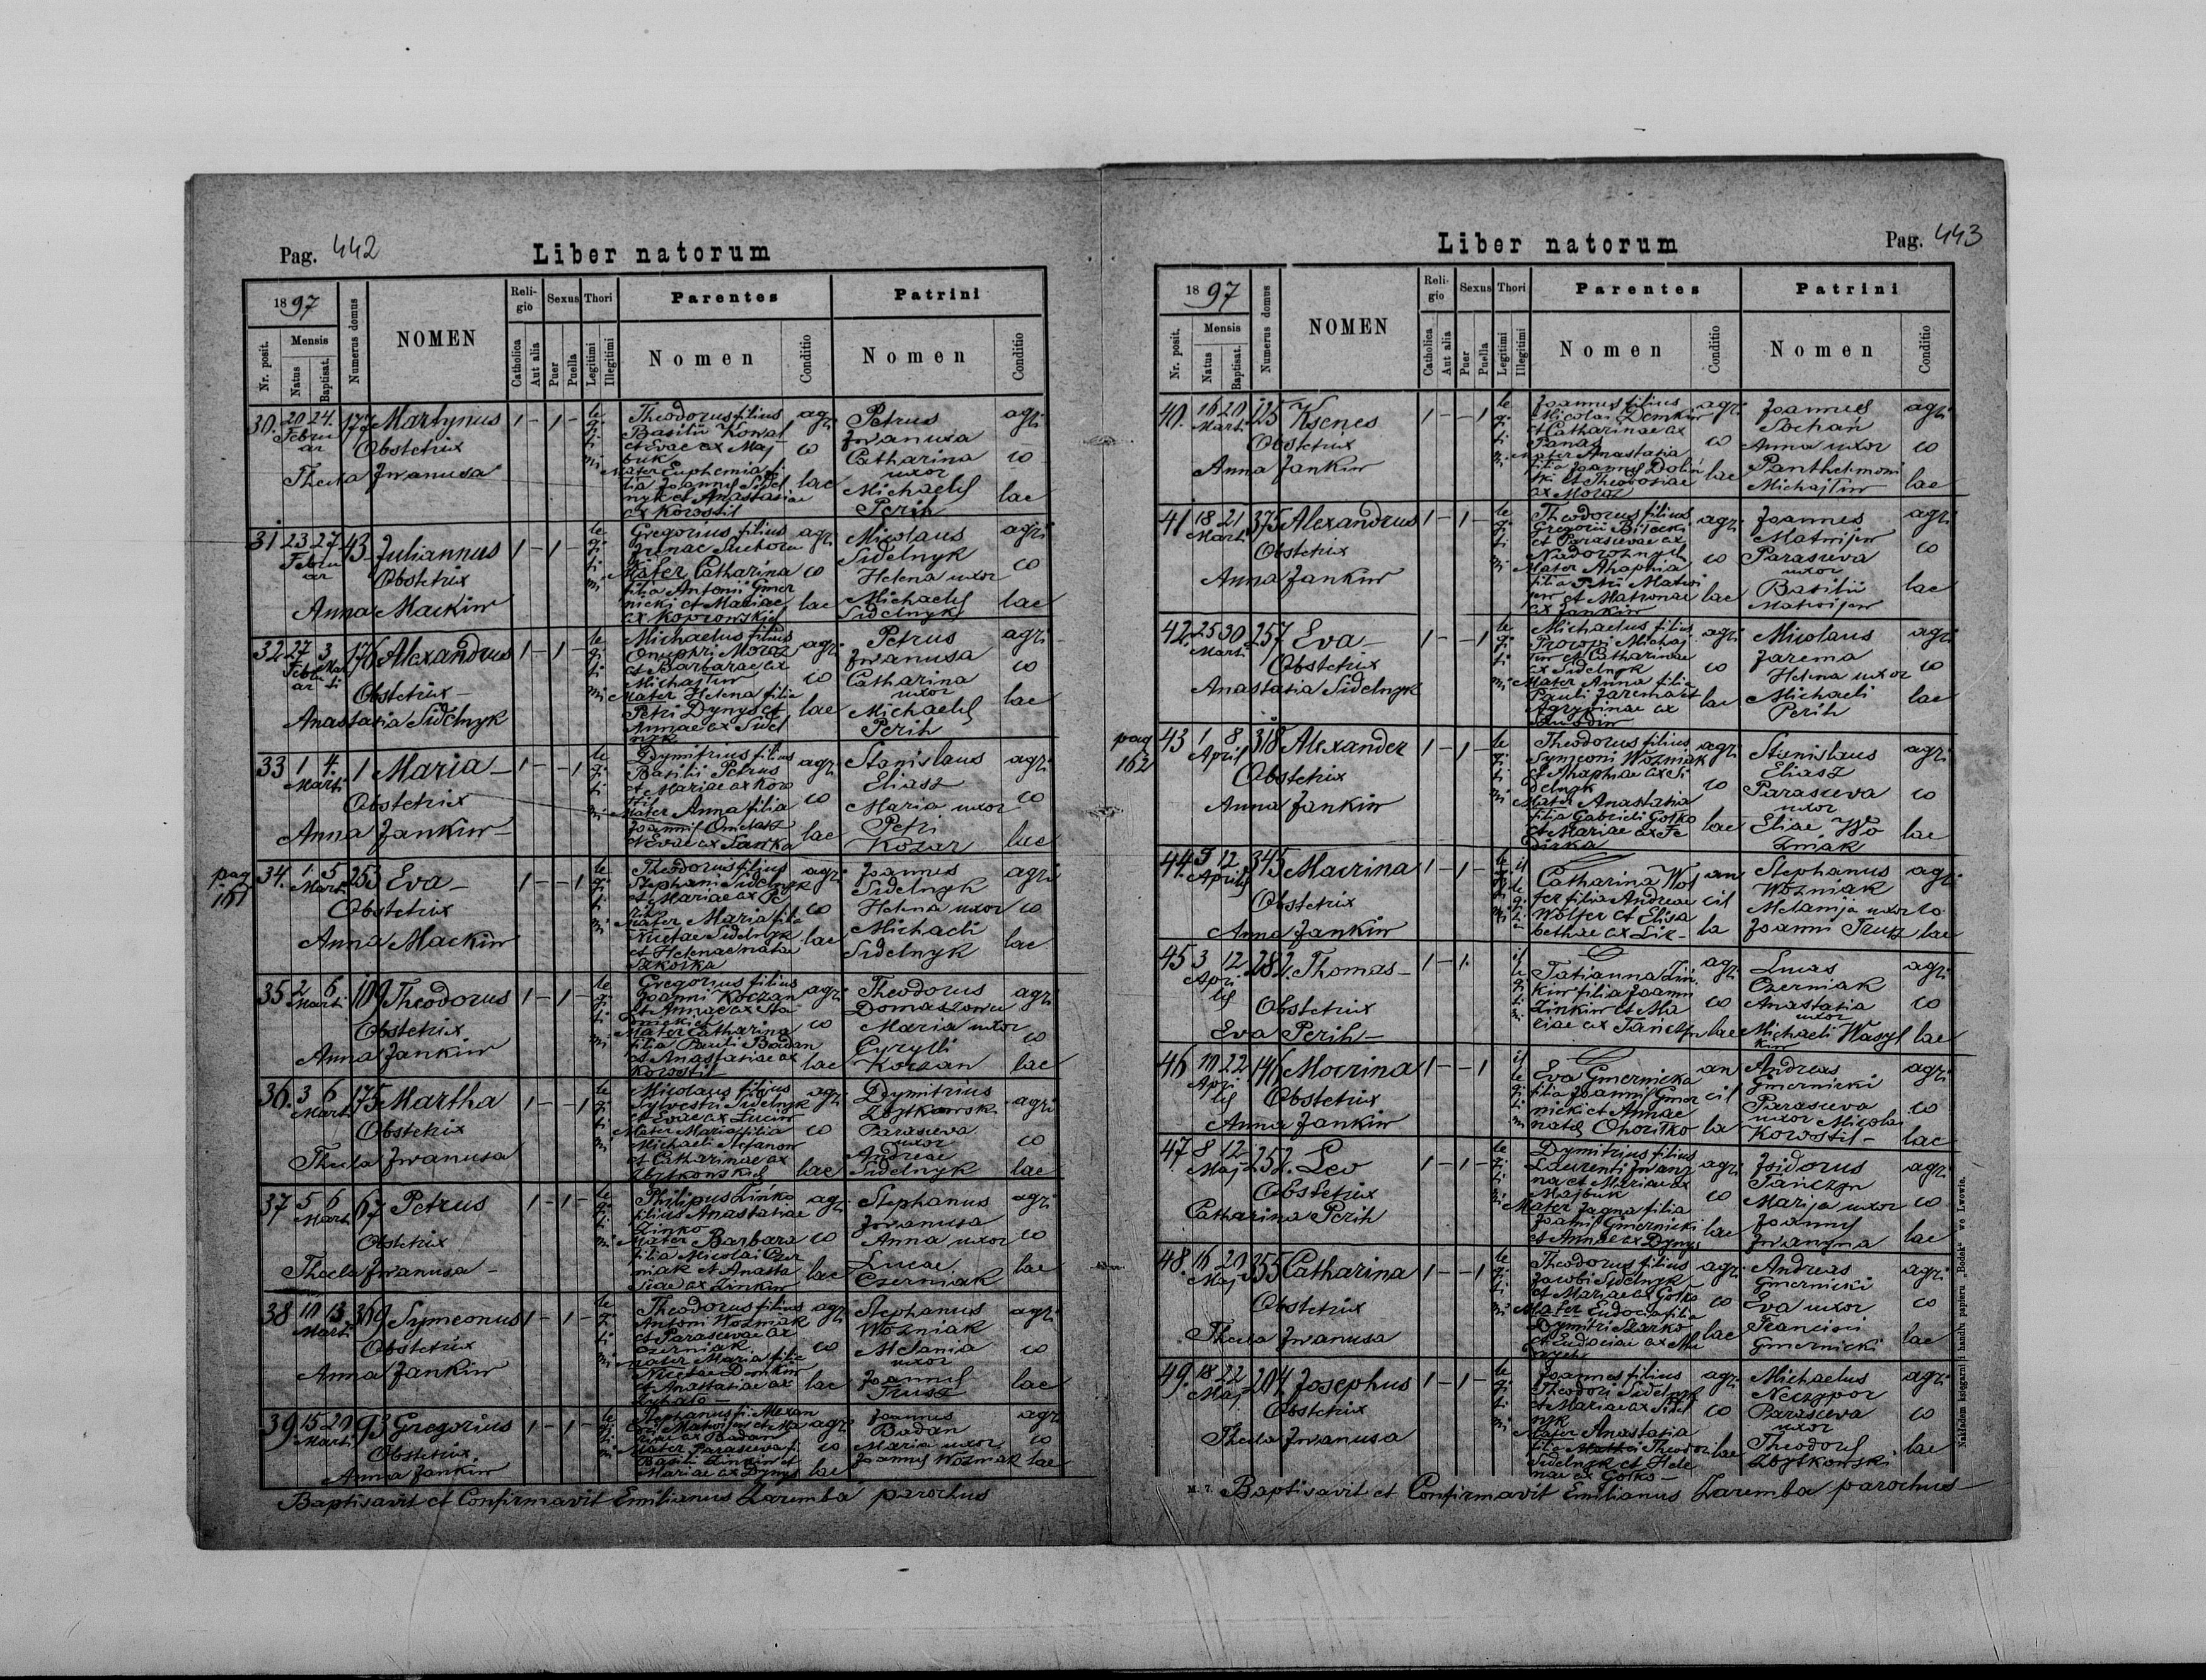 Pag. 442
Liber natorum
1897
Nr. posit.
Mensis
Natus
Baptisat.
Numerus domus
NOMEN
Religio
Catholica
Aut alia
Sexus
Puer
Puella
Thori
Legitimi
Illegitimi
Parentes
Nomen
Conditio
Patrini
Nomen
Conditio
30. 20 24. Februar 177 Martynus 1 - 1 -
Obstetrix
Thecla Iwanusa
legitimi
Theodorus filius
Basilii Kowal
et Evae ex Maj
buk
Mater Euphemia fi
lia Joannis Sidel
nyk et Anastasiae
ex Korostil
agricolae
Petrus
Iwanusa
Catharina
uxor
Michaelis
Perih
agricolae
31 23 27. Februar 43 Juliannus 1 - 1 -
Obstetrix
Anna Mackiw
legitimi
Gregorius filius
Mater Catharina
filia Antonii Gmer
nicki et Mariae
ex Koprowskich
agricolae
Nicolaus
Sidelnyk
Helena uxor
Michaelis
Sidelnyk
agricolae
32 27 Februar 3 Marti 176 Alexandrus 1 - 1 -
Obstetrix
Anastasia Sidelnyk
legitimi
Michaelus filius
Onuphri Moroz
et Barbarae ex
Michajliw
Mater Helena filia
Petri Dynys et
Annae ex Sidel
nyk
agricolae
Petrus
Iwanusa
Catharina
uxor
Michaelis
Perih
agricolae
33 1 4. Marti 1 Maria 1 - - 1
Obstetrix
Anna Jankiw
legitimi
Dymitrius filius
Basilii Petrus
et Mariae ex Koro
stil
Mater Anna filia
Joannis Omelasz
et Evae ex Sawka
agricolae
Stanislaus
Eliasz
Maria uxor
Petri
Kozar
agricolae
pag 161
34. 1 5 Marti 253 Eva 1 - - 1
Obstetrix
Anna Mackiw
legitimi
Theodorus filius
Stephani Sidelnyk
et Mariae ex Pe
rih
Mater Maria filia
Nicetae Sidelnyk
et Helenae nata
agricolae
Joannes
Sidelnyk
Helena uxor
Michaeli
Sidelnyk
agricolae
35 2 6 Marti 109 Theodorus 1 - 1 -
Obstetrix
Anna Jankiw
legitimi
Gregorius filius
Joanni Koczan
et Annae ex
Mater Catharina
filia Pauli Badan
et Anastasiae ex
Korostil
agricolae
Theodorus
Maria uxor
Cyrylli
Koczan
agricolae
36. 3 6 Marti 175 Martha 1 - - 1
Obstetrix
Thecla Iwanusa
legitimi
Nicolaus filius
Sylvestri Sidelnyk
et Evae ex Luciw
Mater Maria filia
Michaeli Stefanow
et Catharinae ex
Zbytkowskich
agricolae
Dymitrius
Zbytkowski
Parasceva
uxor
Andreae
Sidelnyk
agricolae
37 5 6 Marti 67 Petrus 1 - 1 -
Obstetrix
Thecla Iwanusa
legitimi
Philipus Zinko
filius Anastasiae
Zinko
Mater Barbara
filia Nicolai Czer
niak et Anasta
siae ex Zinkiw
agricolae
Stephanus
Iwanusa
Anna uxor
Lucae
Czerniak
agricolae
38 10 13 Marti 369 Symeonus 1 - 1 -
Obstetrix
Anna Jankiw
legitimi
Theodorus filius
Antoni Wozniak
et Parascevae ex
Czerniak
mater Maria filia
Nicetae Demkiw
et Anastasiae ex
agricolae
Stephanus
Wozniak
Melania
uxor
Joannis
Trusz
agricolae
39. 15 20 Marti 93 Gregorius 1 - 1 -
Obstetrix
Anna Jankiw
legitimi
Stephanus fi. Alexan
dri Matwijew et Ma
riae ex Badan
Mater Parasceva fi.
Basili Zinkiw et
Mariae ex Dynys
agricolae
Joannes
Badan
Maria uxor
Joannis Wozniak
agricolae
Baptisavit et Confirmavit Emilianus Zaremba parochus
Liber natorum
Pag. 443
1897
Nr. posit.
Mensis
Natus
Baptisat.
Numerus domus
NOMEN
Religio
Catholica
Aut alia
Sexus
Puer
Puella
Thori
Legitimi
Illegitimi
Parentes
Nomen
Conditio
Patrini
Nomen
Conditio
40. 16 20 Marti 225 Ksenes 1 - - 1
Obstetrix
Anna Jankiw
legitimi
Joannes filius
Nicolai Demkiw
et Catharinae ex
Panas
Mater Anastasia
filia Joannis Dolin
ski et Theodosiae
ex Moroz
agricolae
Joannes
Sochan
Anna uxor
Panthelimoni
Michajliw
agricolae
41 18 21 Marti 375 Alexandrus 1 - 1 -
Obstetrix
Anna Jankiw
legitimi
Theodorus filius
Gregorii Bilecki
et Parascevae ex
Nadorożnych
Mater Ahaphia
filia Petri Matwi
jew et Matronae
ex Jankiw
agricolae
Joannes
Matwijew
Parasceva
uxor
Basilii
Matwijew
agricolae
42. 25 30 Marti 257 Eva 1 - - 1
Obstetrix
Anastasia Sidelnyk
legitimi
Michaelus filius
Procopi Michaj
liw et Catharinae
ex Sidelnyk
Mater Anna filia
Pauli Jarema et
Agrypinae ex
agricolae
Nicolaus
Jarema
Helena uxor
Michaeli
Perih
agricolae
pag 162
43 1 8 April 318 Alexander 1 - 1 -
Obstetrix
Anna Jankiw
legitimi
Theodorus filius
Symeoni Wozniak
et Ahaphiae ex Si
delnyk
Mater Anastasia
filia Gabrieli Gotko
et Mariae ex Fe
agricolae
Stanislaus
Eliasz
Parasceva
uxor
Eliae Wo
zniak
agricolae
44. 3 12 Aprilis 345 Macrina 1 - 1 -
Obstetrix
Anna Jankiw
Catharina Wol
fer filia Andreae
Wolfer et Elisa
bethae ex Lix
ancilla
Stephanus
Wozniak
Melanija uxor
Joanni Trusz
agricolae
45 3 12 Aprilis 282. Thomas 1 - 1
Obstetrix
Eva Perih
Tatianna Zin
kiw filia Joanni
Zinkiw et Ma
riae ex Tanczyn
agricolae
Lucas
Czerniak
Anastasia
uxor
Michaeli Wasyl
kiw
agricolae
46 10 22 Aprilis 146 Macrina 1 - - 1
Obstetrix
Anna Jankiw
Eva Gmernicka
filia Joannis Gmer
nicki et Annae
nata Choritko
ancilla
Andreas
Gmernicki
Parasceva
uxor Nicolai
Korostil
agricolae
47 8 12 Maj 252. Leo 1 - 1 -
Obstetrix
Catharina Perih
legitimi
Dymitrius filius
Laurenti Iwany
na et Mariae ex
Majbuk
Mater Jagna filia
Joannis Gmernicki
et Annae ex Dynys
agricolae
Isidorus
Tanczyn
Marija uxor
Joannis
Iwanyna
agricolae
48. 16 20 Maj 355 Catharina 1 - - 1
Obstetrix
Thecla Iwanusa
legitimi
Theodorus filius
Jacobi Sidelnyk
et Mariae ex Gotko
Mater Eudocia filia
Dymitri Szarko
et Eudociae ex
agricolae
Andreas
Gmernicki
Eva uxor
Francisci
Gmernicki
agricolae
49. 18 22 Maj 204. Josephus 1 - 1 -
Obstetrix
Thecla Iwanusa
legitimi
Joannes filius
Theodori Sidelnyk
et Mariae ex Sidel
nyk
Mater Anastasia
filia Theodori
Sidelnyk et Hele
nae ex Gotko
agricolae
Michaelus
Neczypor
Parasceva
uxor
Theodori
Zbytkowski
agricolae
M. 7. Baptisavit et Confirmavit Emilianus Zaremba parochus
Nakładem księgarni i handlu papieru „Bodek" we Lwowie.